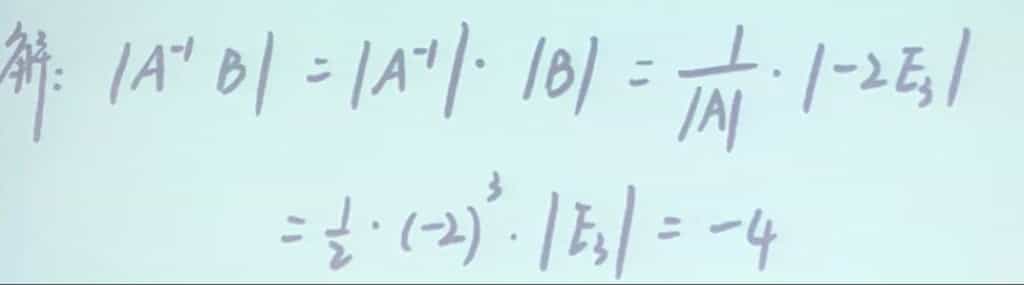 解: |A⁻¹ B| = |A⁻¹| · |B| = 1/|A| · |-2E₃|
= 1/2 · (-2)³ · |E₃| = -4